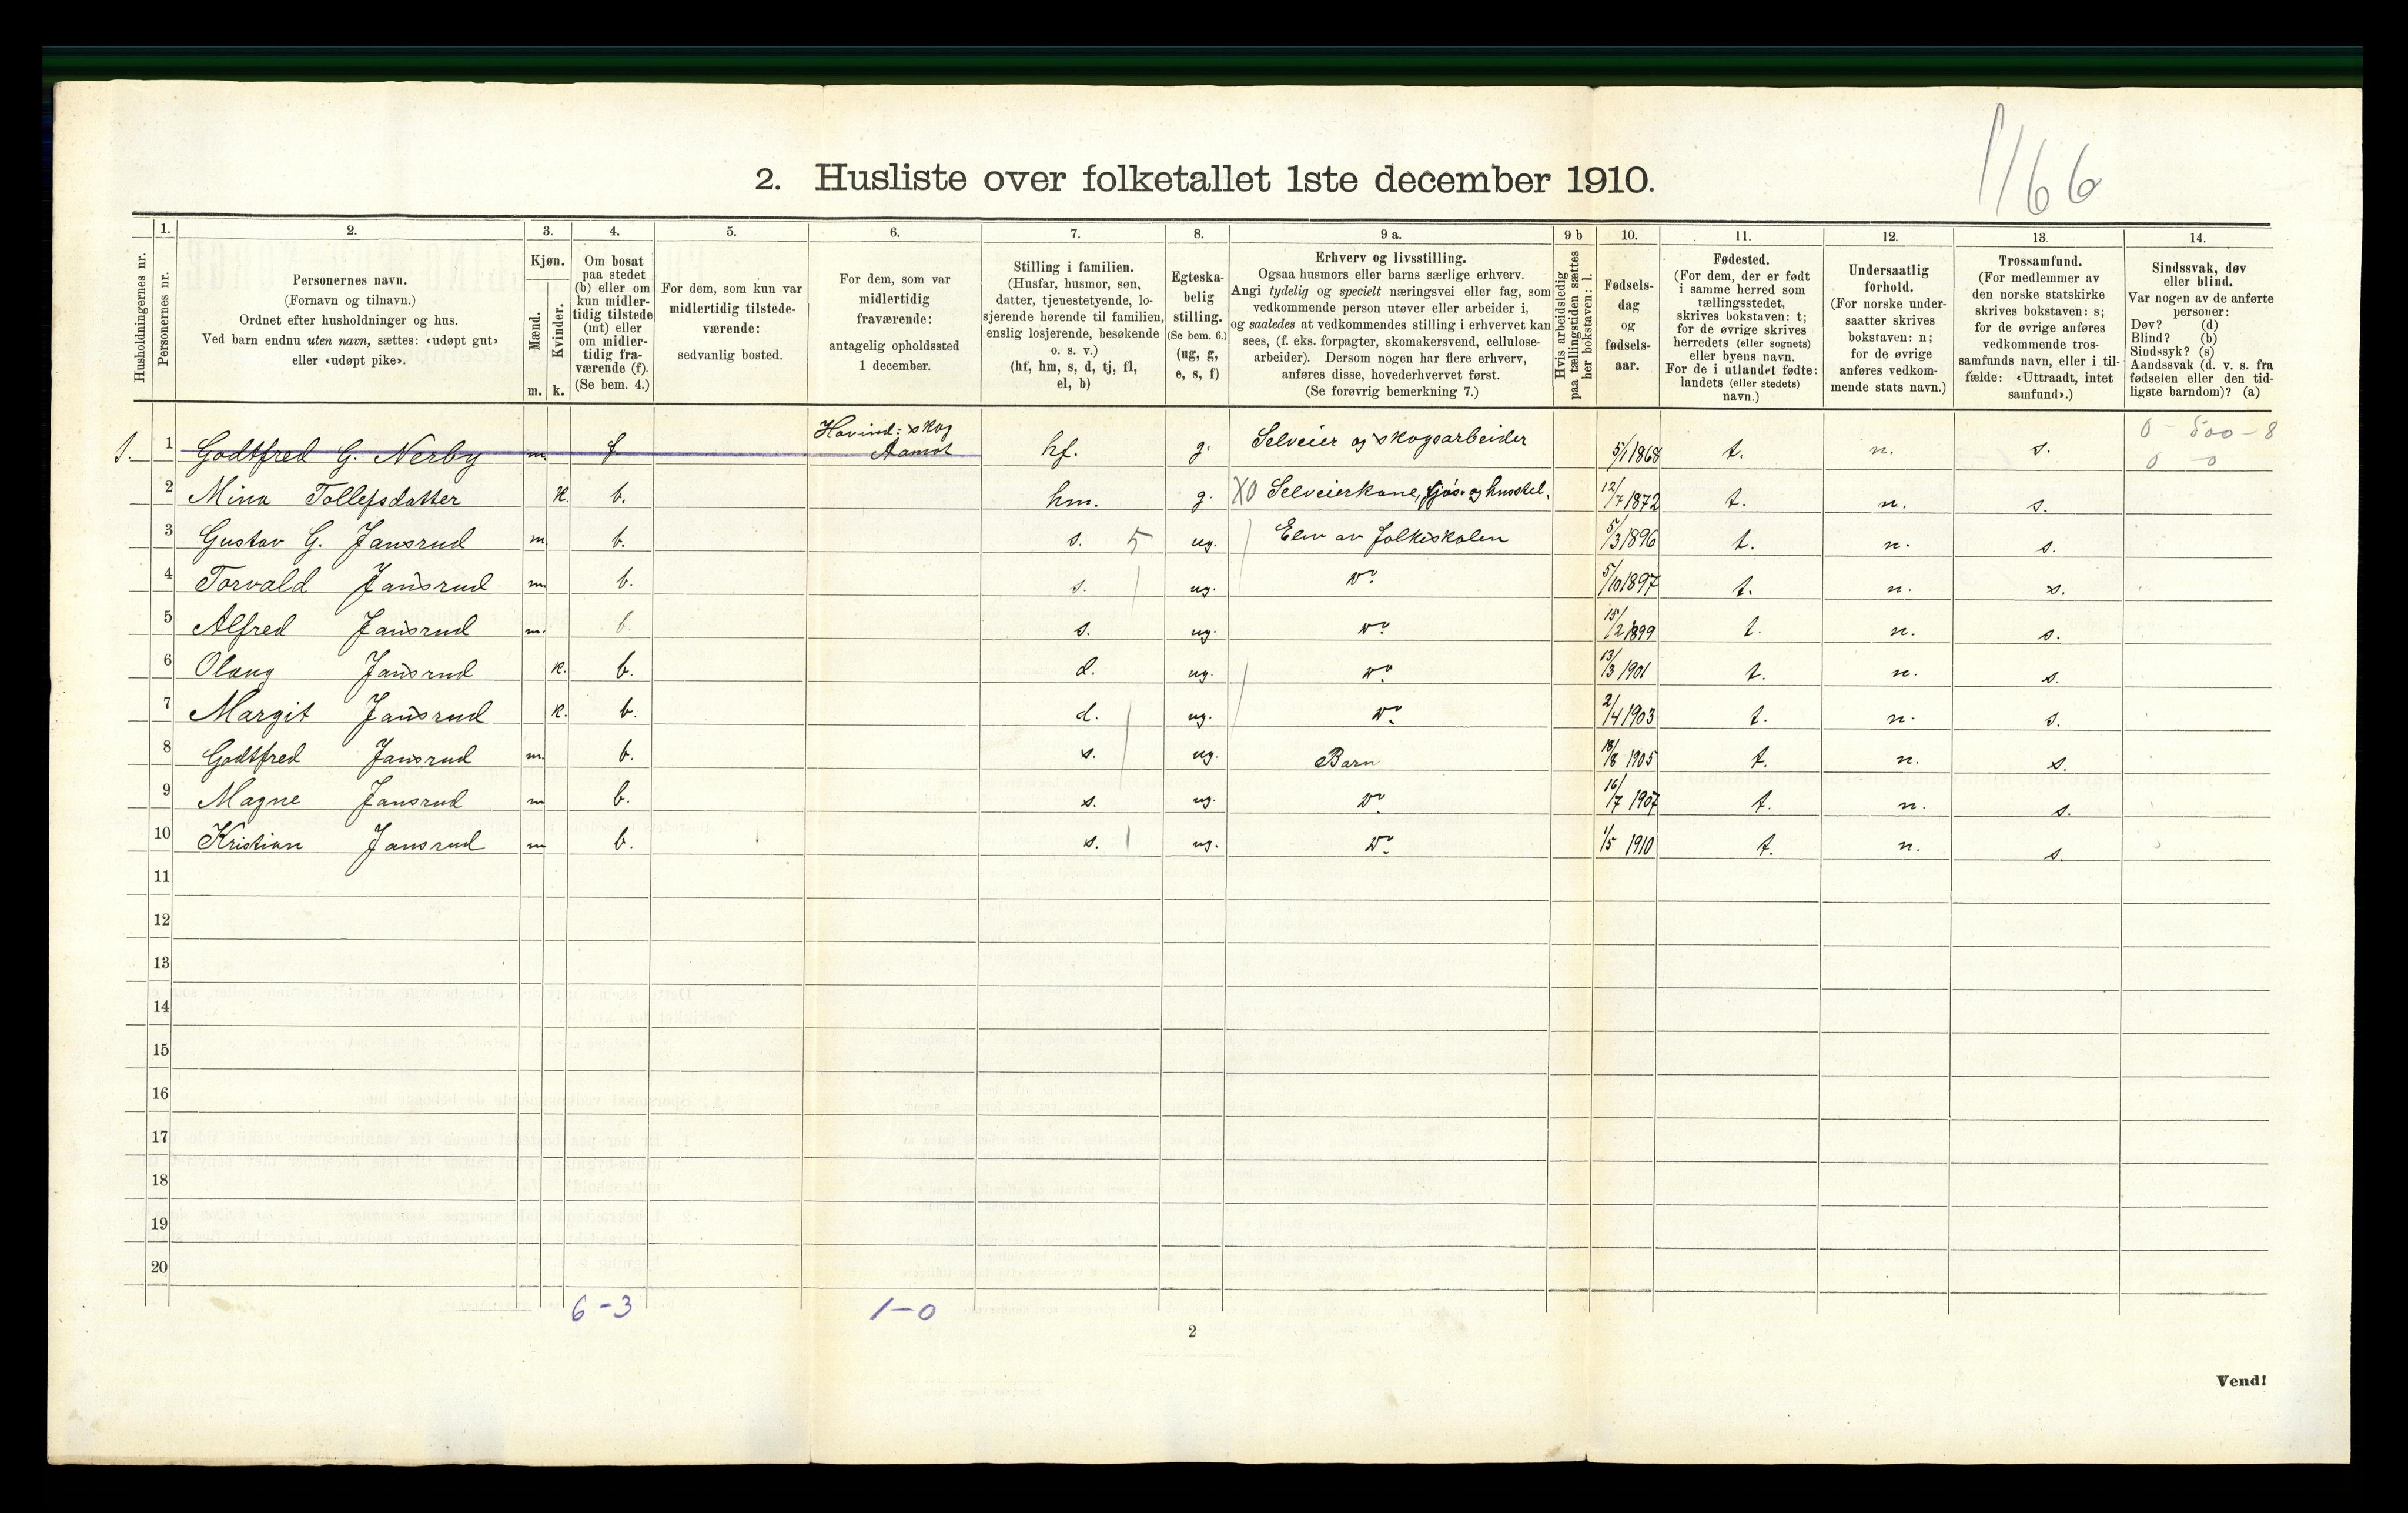 1/66
2. Husliste over folketallet 1ste december 1910.
Husholdningernes nr.
1. Personernes nr.
2. Personernes navn. (Fornavn og tilnavn.) Ordnet efter husholdninger og hus. Ved barn endnu uten navn, sættes: «udøpt gut» eller «udøpt pike».
3. Kjøn. Mænd. m. Kvinder. k.
4. Om bosat paa stedet (b) eller om kun midler-tidig tilstede (mt) eller om midler-tidig fra-værende (f). (Se bem. 4.)
5. For dem, som kun var midlertidig tilstede-værende: sedvanlig bosted.
6. For dem, som var midlertidig fraværende: antagelig opholdssted 1 december.
7. Stilling i familien. (Husfar, husmor, søn, datter, tjenestetyende, lo-sjerende hørende til familien, enslig losjerende, besøkende o. s. v.) (hf, hm, s, d, tj, fl, el, b)
8. Egteska-belig stilling. (Se bem. 6.) (ug, g, e, s, f)
9 a. Erhverv og livsstilling. Ogsaa husmors eller barns særlige erhverv. Angi tydelig og specielt næringsvei eller fag, som vedkommende person utøver eller arbeider i, og saaledes at vedkommendes stilling i erhvervet kan sees, (f. eks. forpagter, skomakersvend, cellulose-arbeider). Dersom nogen har flere erhverv, anføres disse, hovederhvervet først. (Se forøvrig bemerkning 7.)
9 b Hvis arbeidsledig paa tællingstiden sættes her bokstaven: l.
10. Fødsels-dag og fødsels-aar.
11. Fødested. (For dem, der er født i samme herred som tællingsstedet, skrives bokstaven: t; for de øvrige skrives herredets (eller sognets) eller byens navn. For de i utlandet fødte: landets (eller stedets) navn.)
12. Undersaatlig forhold. (For norske under-saatter skrives bokstaven: n; for de øvrige anføres vedkom-mende stats navn.)
13. Trossamfund. (For medlemmer av den norske statskirke skrives bokstaven: s; for de øvrige anføres vedkommende tros-samfunds navn, eller i til-fælde: «Uttraadt, intet samfund».)
14. Sindssvak, døv eller blind. Var nogen av de anførte personer: Døv? (d) Blind? (b) Sindssyk? (s) Aandssvak (d. v. s. fra fødselen eller den tid-ligste barndom)? (a)
1. 1 Godtfred G. Nerby m. f Hovind: skog Aamot hf. g. Selveier og skogsarbeider 5/1 1868 t. n. s. 0 - 500 - 8 0 0
2 Mina Tollefsdatter k. b. hm. g. X0 Selveierkone, fjøs- og husstel. 12/7 1872 t. n. s.
3 Gustav G. Jansrud m b. s. 5 ug. Elev av folkeskolen 5/3 1896 t. n. s.
4 Torvald Jansrud m b. s. ug. Do 5/10 1897 t. n. s.
5 Alfred Jansrud m. b. s. ug. Do 15/2 1899 t. n. s.
6 Olaug Jansrud k. b. d. ug. Do 13/3 1901 t. n. s.
7 Margit Jansrud k. b. d. ug. Do 2/4 1903 t. n. s.
8 Godtfred Jansrud m. b. s. ug. Barn 18/8 1905 t. n. s.
9 Magne Jansrud m b. s. ug. Do 16/7 1907 t. n. s.
10 Kristian Jansrud m b. s. ug. Do 1/5 1910 t. n. s.
11
12
13
14
15
16
17
18
19
20
6-3 1-0
2
Vend!